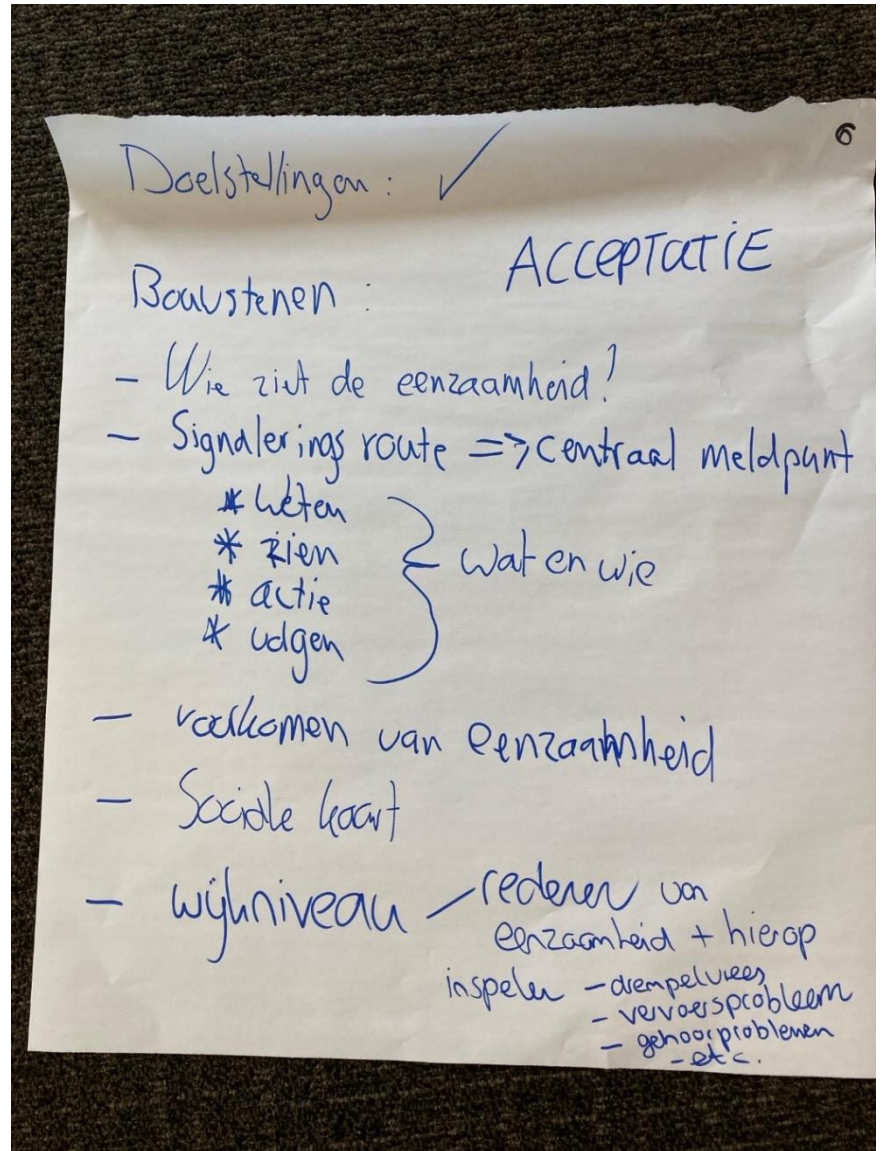 6
Doelstellingen: ✓
ACCEPTATIE
Bouwstenen:
- Wie ziet de eenzaamheid?
- Signalerings route => centraal meldpunt
* weten
* zien
* actie
* volgen
wat en wie
- voorkomen van eenzaamheid
- Sociale kaart
- wijkniveau - redenen van
eenzaamheid + hierop
inspelen - drempelvrees
- vervoersprobleem
- gehoorproblemen
- etc.